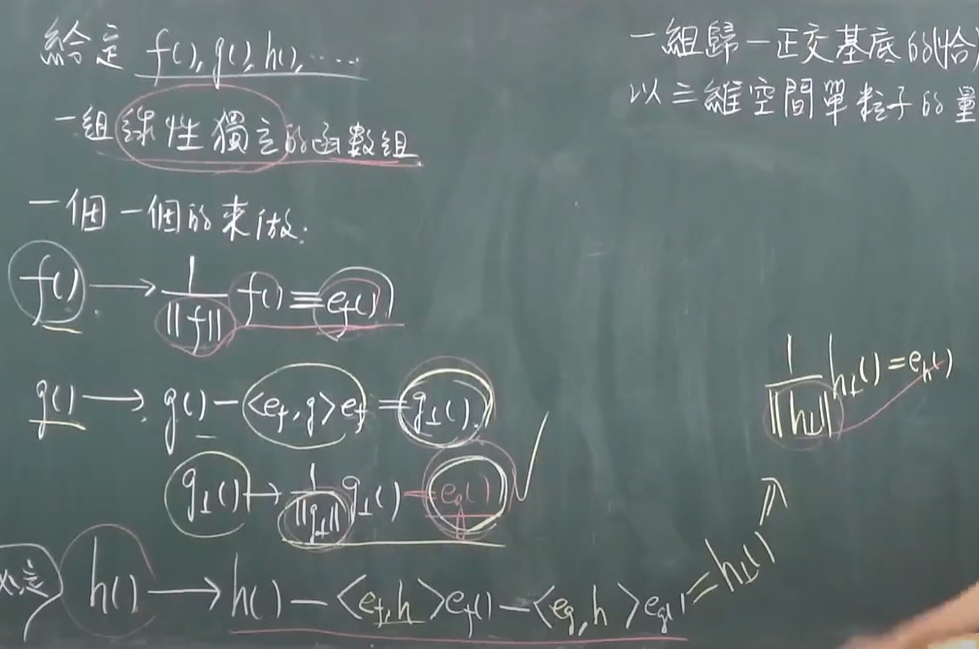 給定 f(), g(), h(), .....
一組線性獨立的函數組
一個一個的來做.
f() → 1/||f|| f() ≡ e_f()
g() → g() - <e_f, g>e_f = g⊥()
g⊥() → 1/||g⊥|| g⊥() = e_g() ✓
定 h() → h() - <e_f, h>e_f() - <e_g, h>e_g() = h⊥()
⇒ 1/||h⊥|| h⊥() = e_h()
一組歸一正交基底的恰
以三維空間單粒子的量